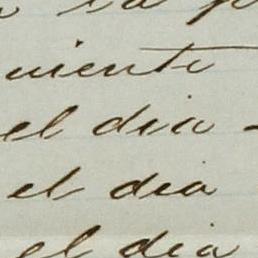 la p
uiente
el dia -
el dia
el dia